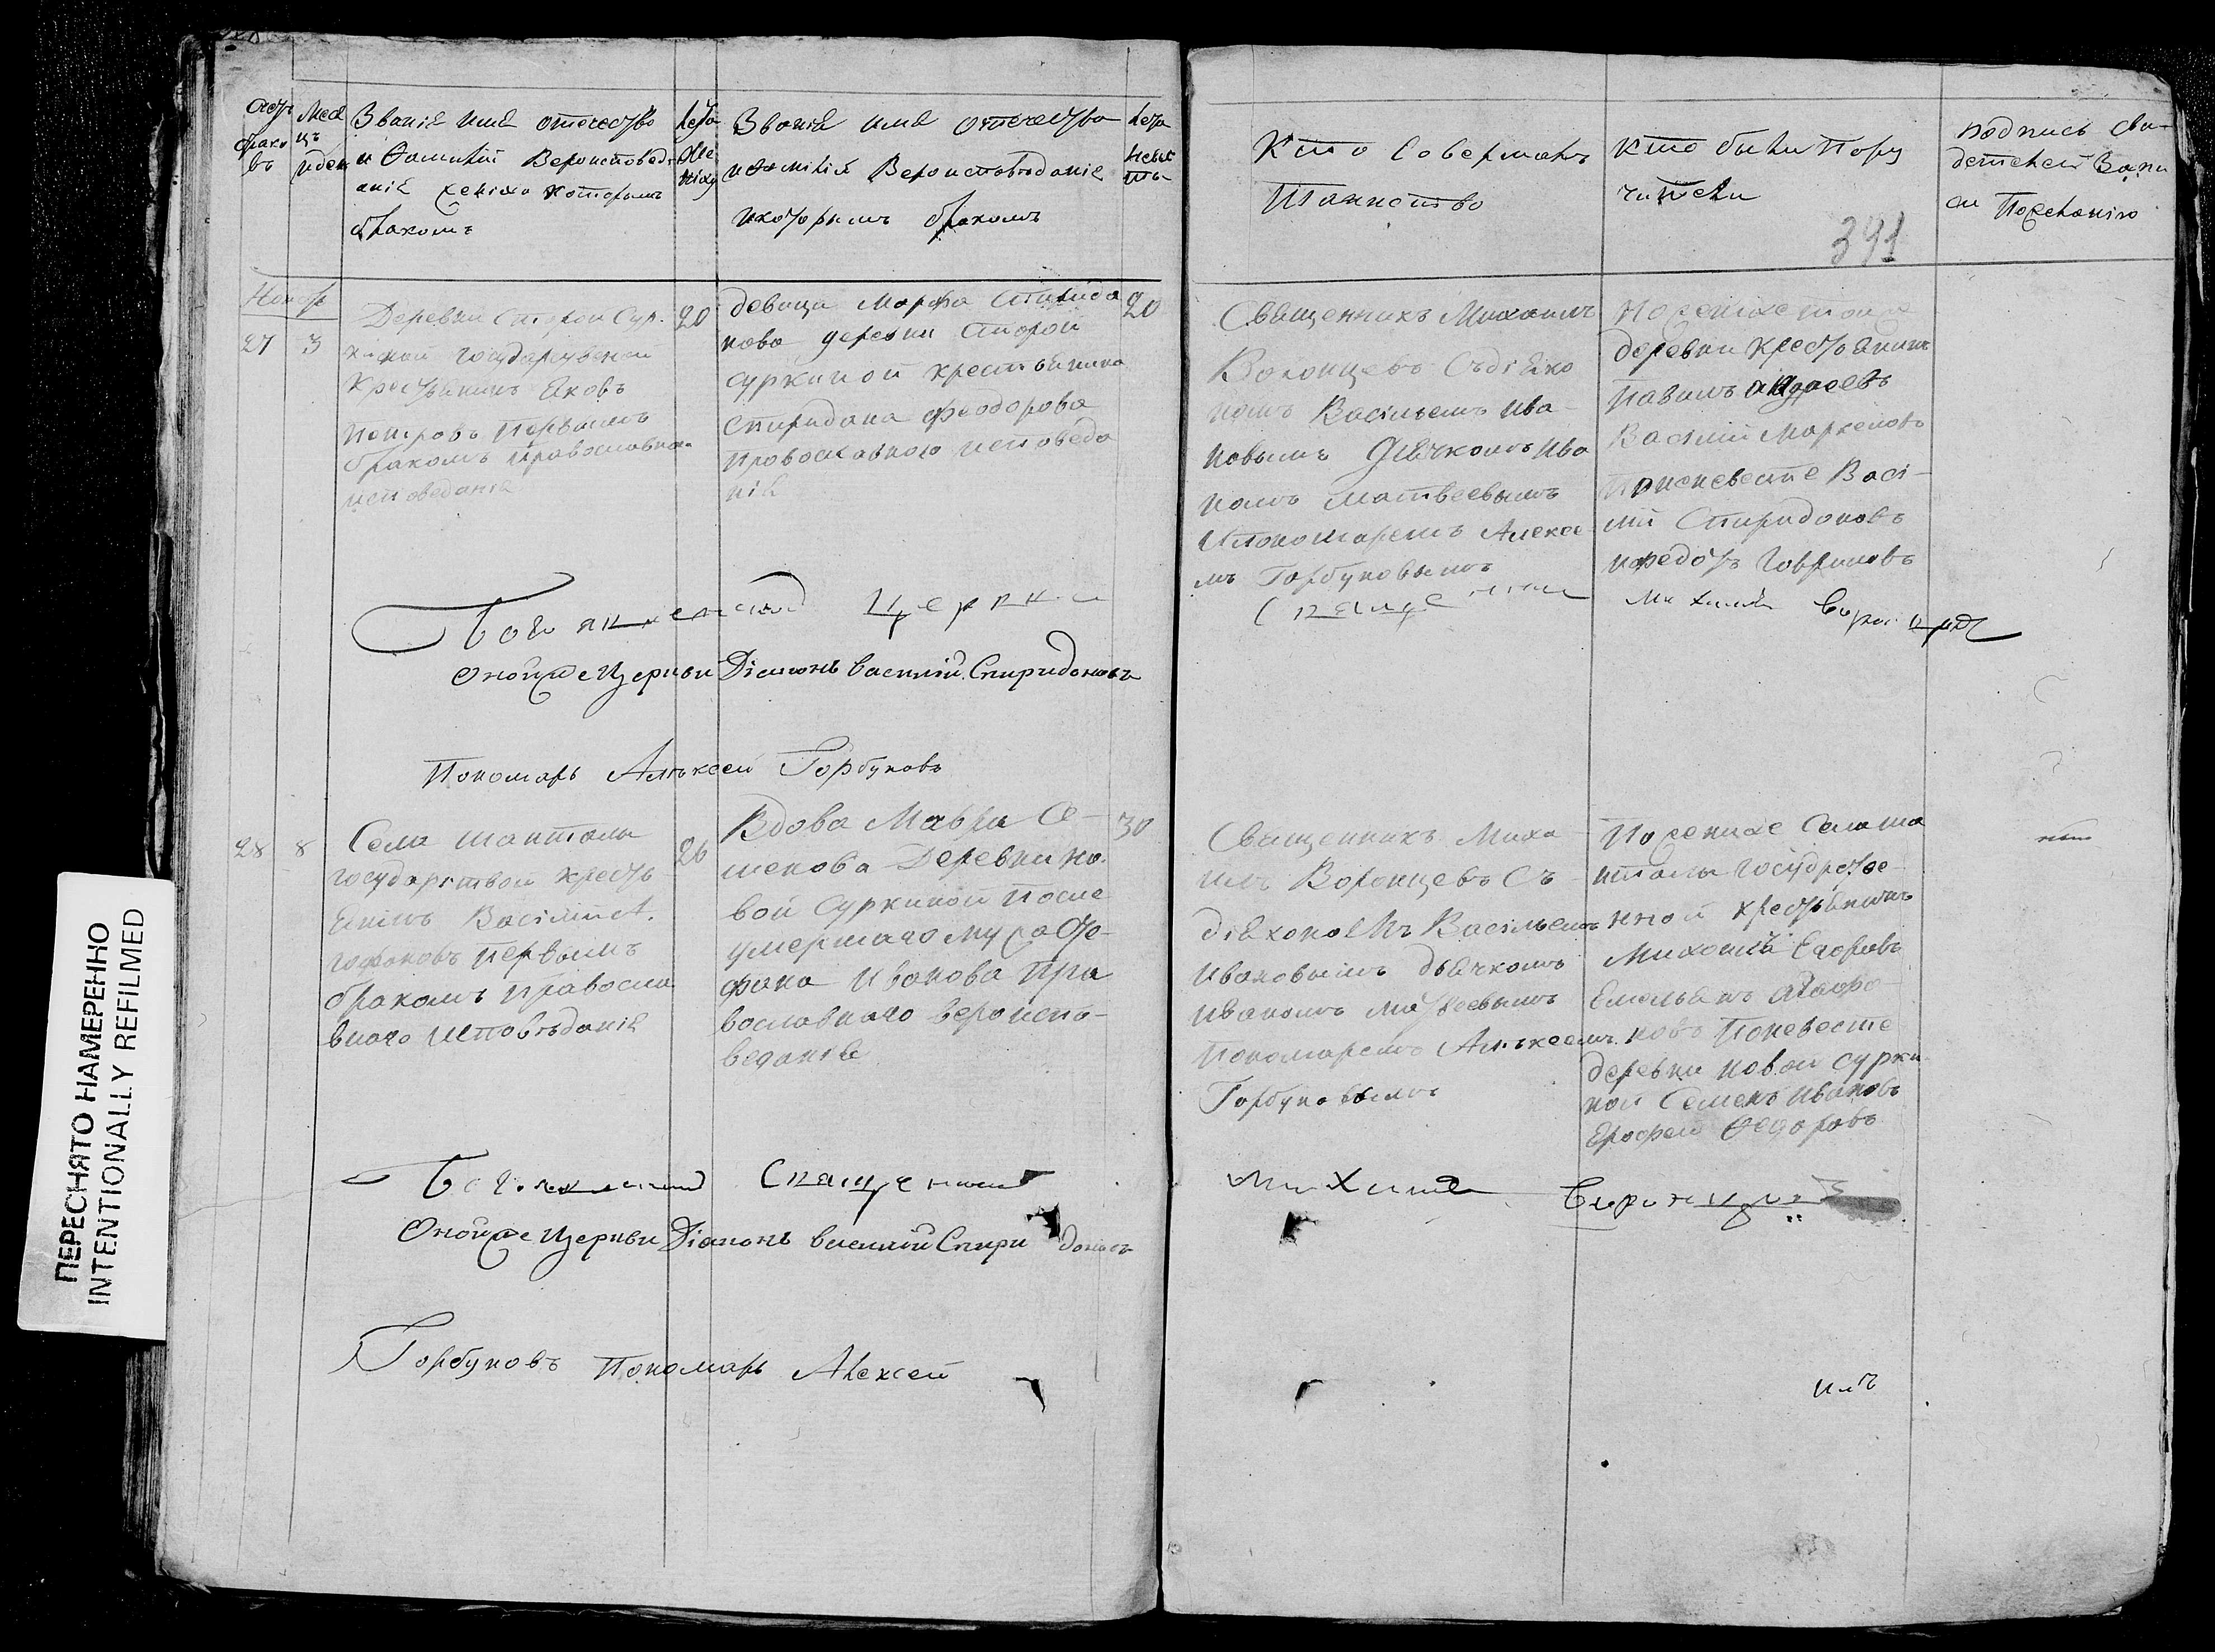 Счетъ браковъ
Месецъ и ден
Званіе имя отечество
и Фамилій Вероисповед
аніе жениха которымъ
бракомъ
Лета
Жениху
Званіе имя отечество
и Фамилій Вероисповѣданіе
и которымъ бракомъ
Лета
невесты
Кто совершалъ
Таинство
Кто были Пору
чители
подпись сви-
детелей Запи
си По желанію
391
Ноябр
27 3
Деревни Старой Сур-
киной государственой
крестьянинъ Яковъ
Петровъ первымъ
бракомъ православнаго
исповеданія
20
девица Марфа Спиридо
нова деревни Старой
суркиной крестьянина
Спиридона Феодорова
православного исповеда
нія
20
Священникъ Михаилъ
Воронцевъ Съ діяко
номъ Васильемъ Ива-
новымъ Дьячкомъ Ива
номъ Матвеевымъ
и пономаремъ Алексе
мъ Горбуновымъ
По женихе тойже
деревни крестьянинъ
Павилъ
Василій Маркеловъ
При невесте Васи-
лій Спиридоновъ
и федотъ Гавриловъ
Богоявленской Церкви
Священникъ
Михаилъ Воронцевъ
Оной же Церкви Діаконъ Василій Спиридоновъ
Пономарь Алѣксей Горбуновъ
28 8
Села шантала
государствой кресть
янинъ Василій А.
гофоновъ первымъ
бракомъ правосла
внаго исповѣданія
26
Вдова Мавра Се-
менова Деревни но-
вой суркиной После
умершаго мужа Сте-
фана Иванова Пра
вославнаго вероиспо-
веданіе
30
Священникъ Миха
илъ Воронцевъ Съ
діякономъ Васильемъ
Ивановымъ дьячкомъ
Иваномъ матвеевымъ
Пономаремъ Алѣксеемъ
Горбуновымъ
По женихе села ша
нталы государстве-
нной крестьянинъ
Михаилъ Егоровъ
Емельянъ Агафо-
новъ По невесте
деревни новой сурки
ной Семенъ Ивановъ
Ерофеи Федоровъ
Богоявленской Священникъ
Михаилъ Воронцевъ
Оной же Церкви Діаконъ Василій Спиридоновъ
Горбуновъ Пономарь Алексей
ПЕРЕСНЯТО НАМЕРЕННО
INTENTIONALLY REFILMED